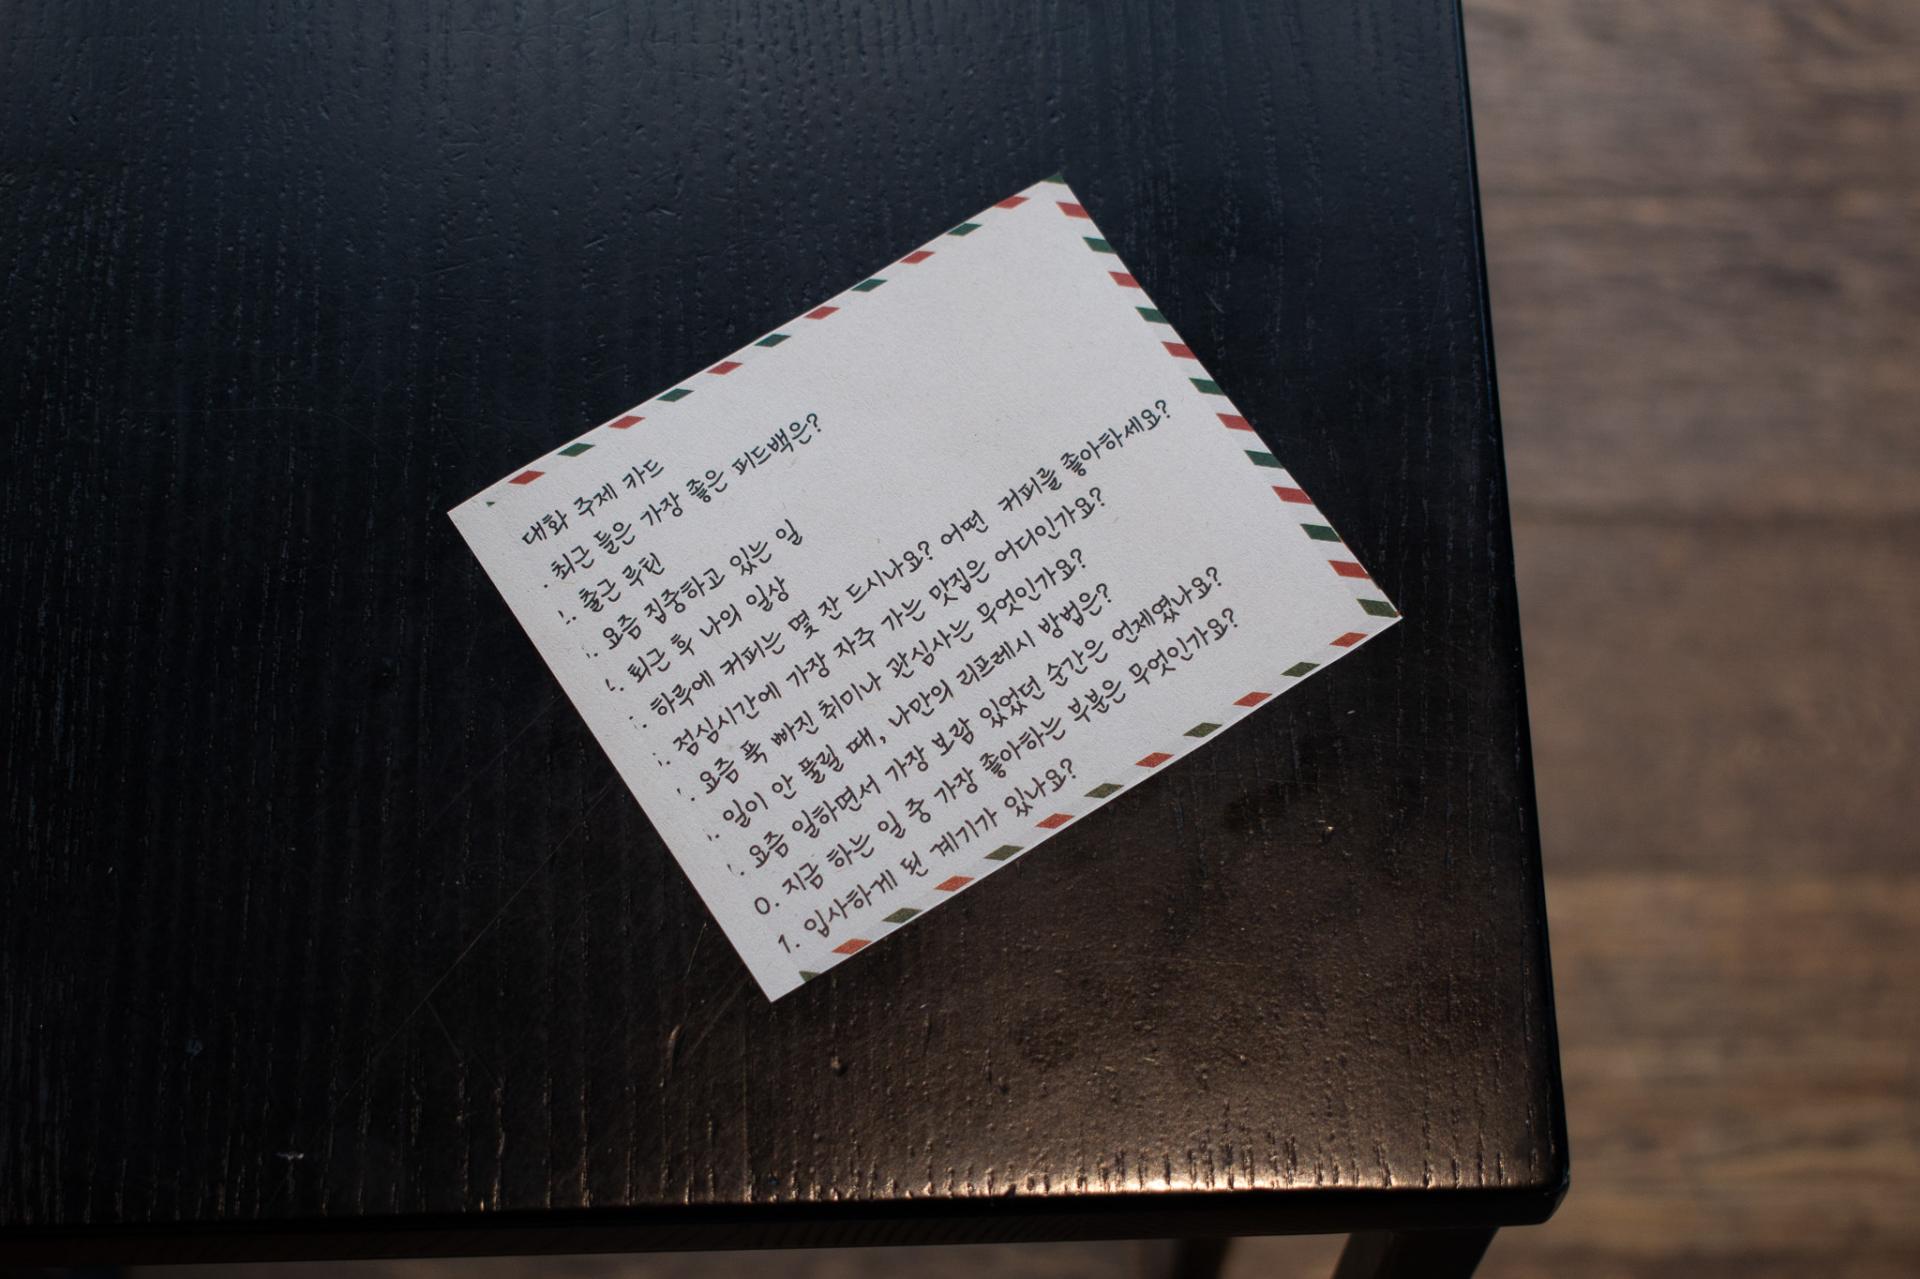 대화 주제 카드
. 최근 들은 가장 좋은 피드백은?
. 출근 루틴
. 요즘 집중하고 있는 일
. 퇴근 후 나의 일상
. 하루에 커피는 몇 잔 드시나요? 어떤 커피를 좋아하세요?
. 점심시간에 가장 자주 가는 맛집은 어디인가요?
. 요즘 푹 빠진 취미나 관심사는 무엇인가요?
. 일이 안 풀릴 때, 나만의 리프레시 방법은?
. 요즘 일하면서 가장 보람 있었던 순간은 언제였나요?
0. 지금 하는 일 중 가장 좋아하는 부분은 무엇인가요?
1. 입사하게 된 계기가 있나요?